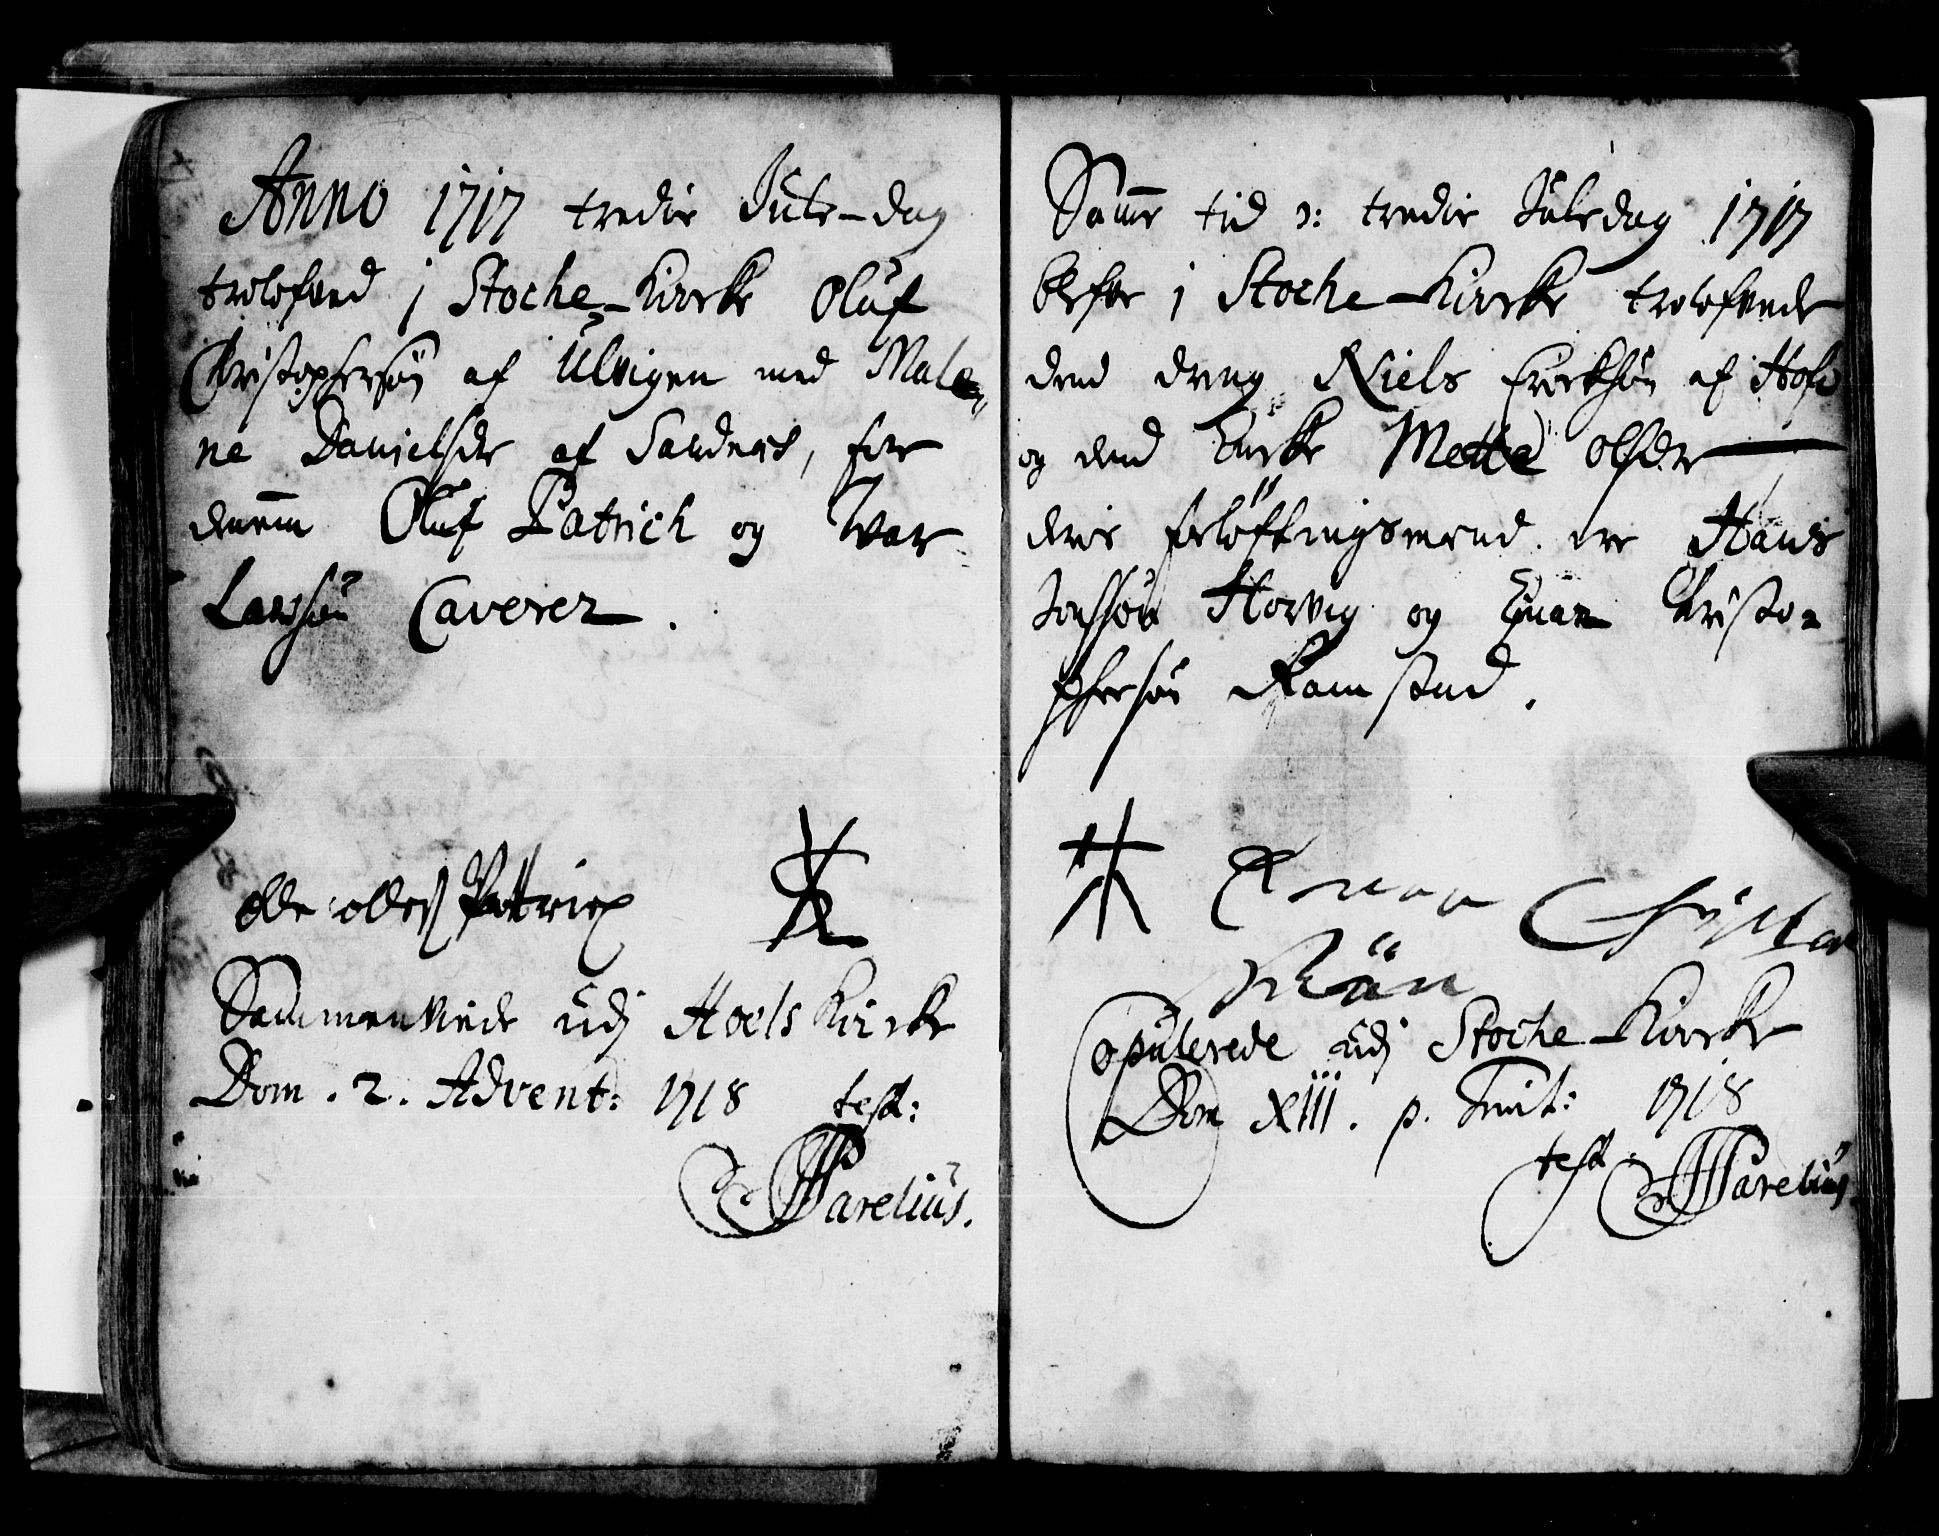 Anno 1717 tredie Jule-dag
trolofved j Stoche-Kircke Oluf
Christophersøn af Ulvigen med Male-
ne Danielsdr af Sandnes, for
dennem Oluf Patrich og Ivar
Larssøn Caverer.
olle olless Pattrix
Sammenviede udj Hoels Kircke
Dom. 2. Advent: 1718 test:
Parelius.
Samme tid ɔ: tredie Juledag 1717
blefve j Stoche-Kircke trolofvede
dend dreng Niels Ericksøn af Hofs
og dend Encke Mette olsdr
deris forløftningsmænd ere Hans
Jonssøn Horvig og Einar Christo-
phersøn Ramstad.
Einar Christo
søn
Copulerede udj Stoche-Kircke
Dom XIII. p. Trinit: 1718
test. Parelius.